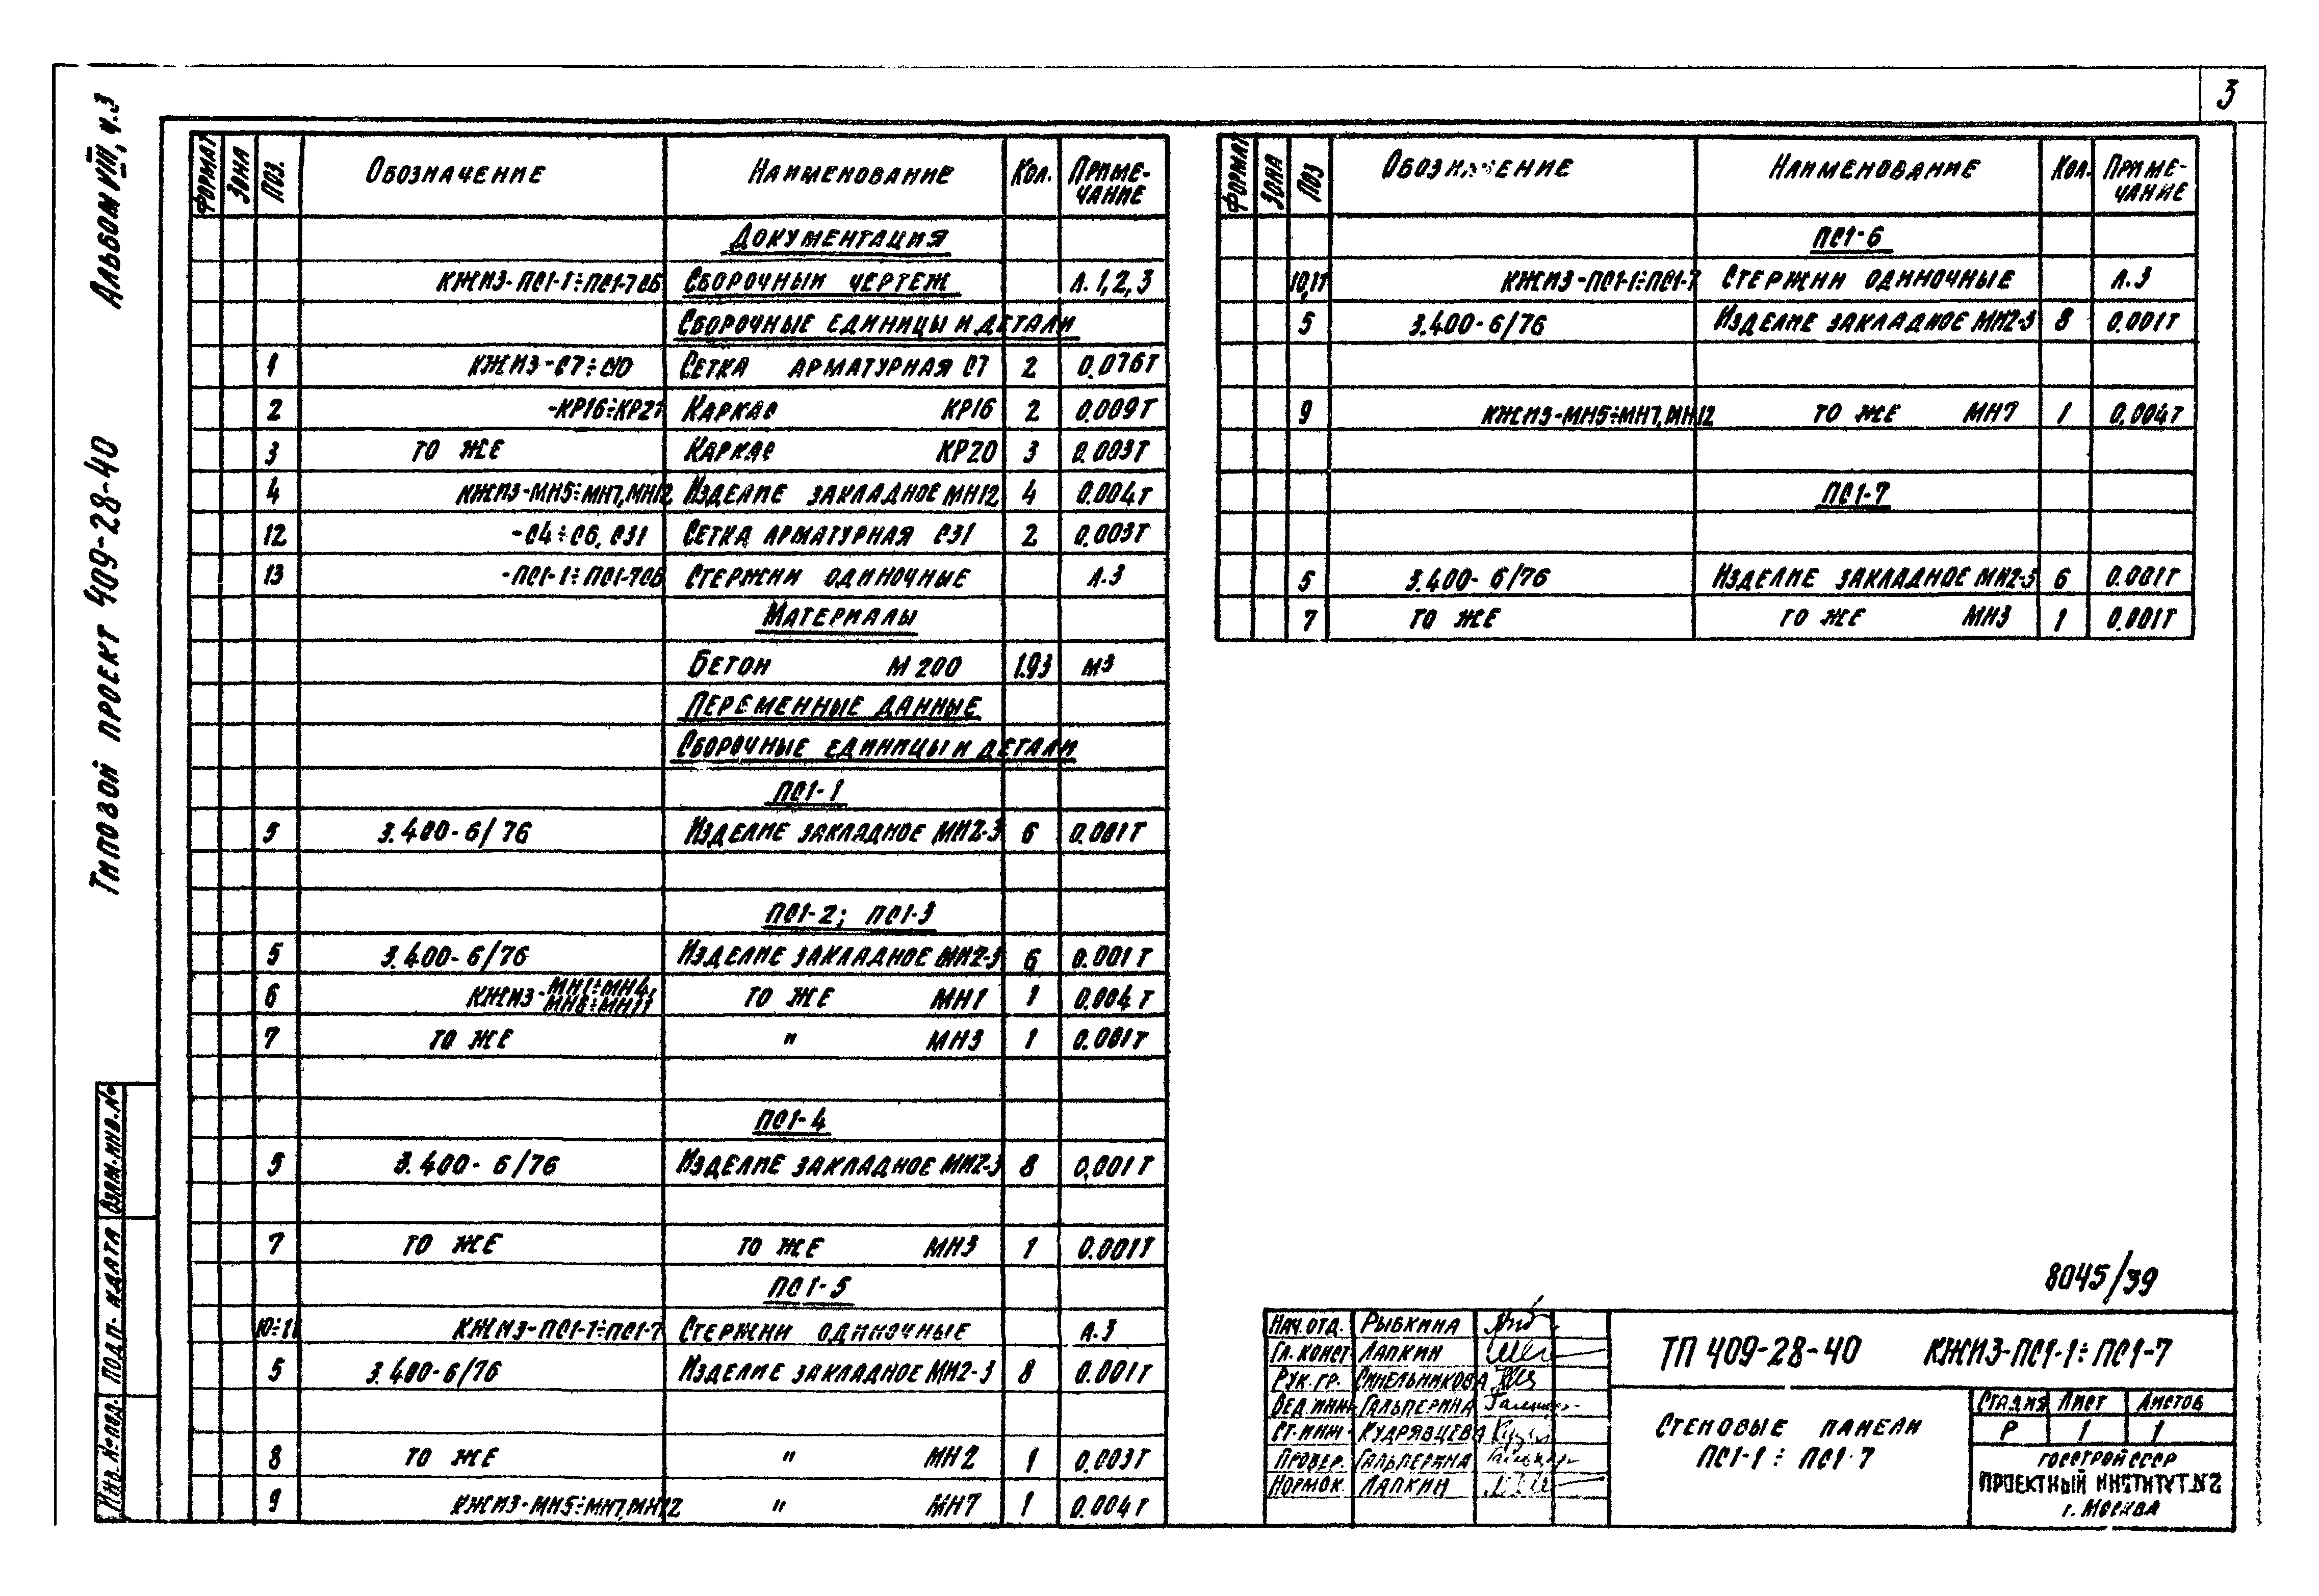 3
Альбом VIII, ч.3
Типовой проект 409-28-40
Взам.инв.№
Подп. и дата
Инв.№подл.
Формат Зона Поз. Обозначение Наименование Кол. Приме-
чание
Документация
КЖИЗ-ПС1-1÷ПС1-7СБ Сборочный чертеж Л.1,2,3
Сборочные единицы и детали
1 КЖИЗ-С7÷С10 Сетка арматурная С7 2 0.076т
2 -КР16÷КР21 Каркас КР16 2 0.009т
3 то же Каркас КР20 3 0.003т
4 КЖИЗ-МН5÷МН7,МН12 Изделие закладное МН12 4 0.004т
12 -С4÷С6, С31 Сетка арматурная С31 2 0.003т
13 -ПС1-1÷ПС1-7СБ Стержни одиночные Л.3
Материалы
Бетон М200 1.93 м3
Переменные данные
Сборочные единицы и детали
ПС1-1
5 3.400-6/76 Изделие закладное МИ2-3 6 0.001т
ПС1-2; ПС1-3
5 3.400-6/76 Изделие закладное МИ2-3 6 0.001т
6 КЖИЗ-МН1÷МН4,
МН8÷МН11 то же МН1 1 0.004т
7 то же " МН3 1 0.001т
ПС1-4
5 3.400-6/76 Изделие закладное МИ2-3 8 0,001т
7 то же то же МН3 1 0.001т
ПС1-5
10÷11 КЖИЗ-ПС1-1÷ПС1-7 Стержни одиночные Л.3
5 3.400-6/76 Изделие закладное МИ2-3 8 0.001т
8 то же " МН2 1 0.003т
9 КЖИЗ-МН5÷МН7,МН12 " МН7 1 0.004т
Формат Зона Поз Наименование Кол. Приме-
чание
ПС1-6
10,11 КЖИЗ-ПС1-1÷ПС1-7 Стержни одиночные Л.3
5 3.400-6/76 Изделие закладное МИ2-3 8 0.001т
9 КЖИЗ-МН5÷МН7,МН12 то же МН7 1 0.004т
ПС1-7
5 3.400-6/76 Изделие закладное МИ2-3 6 0.001т
7 то же то же МН3 1 0.001т
8045/39
Нач.отд. Рыбкина
Гл.конст. Лапкин
Рук.гр. Синельникова
Вед.инж. Гальперина
Ст.инж. Кудрявцева
Провер. Гальперина
Нормок. Лапкин
ТП 409-28-40 КЖИЗ-ПС1-1÷ПС1-7
Стеновые панели
ПС1-1÷ПС1-7
Стадия Лист Листов
Р 1 1
Госстрой СССР
Проектный институт №2
г. Москва